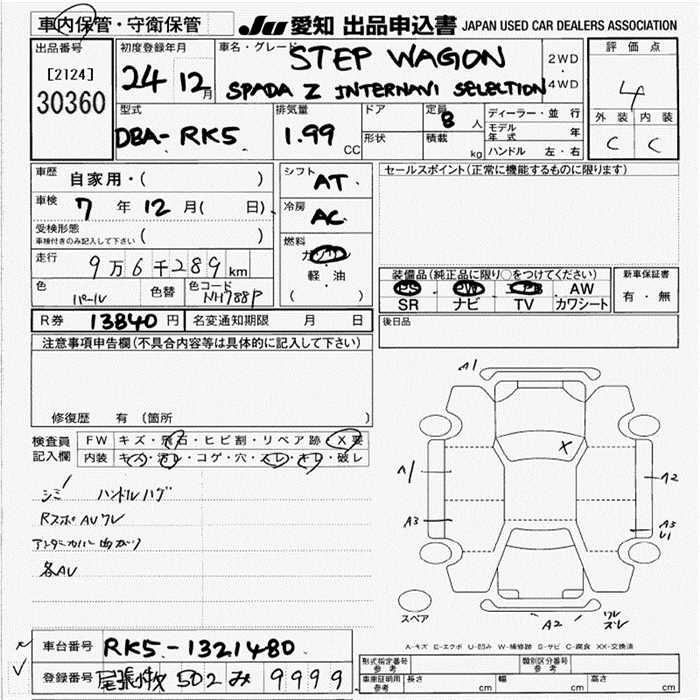 車内保管・守衛保管 JU 愛知 出品申込書 JAPAN USED CAR DEALERS ASSOCIATION
出品番号 初度登録年月 車名・グレード STEP WAGON 2WD 評価点
[2124] 24 12月 SPADA Z INTERNAVI SELECTION ・4WD 4
30360 型式 排気量 ドア 定員 8人 ディーラー・並行 外装 内装
DBA-RK5 1.99 CC 形状 積載 kg モデル年式 年 C C
ハンドル 左・右
車歴 自家用・( ) シフト AT セールスポイント(正常に機能するものに限ります)
車検 7年12月( 日) 冷房 AC
受検形態 ( )
車検付きのみ記入して下さい
燃料 ガソリン
走行 9万6千289km 軽・油
( )
装備品(純正品に限り○をつけてください) 新車保証書
色 パール 色替 色コード NH788P PS PW エアB AW 有・無
SR ナビ TV カワシート
R券 13840円 名変通知期限 月 日 後日品
注意事項申告欄(不具合内容等は具体的に記入して下さい)
修復歴 有 (箇所 )
検査員 FW キズ・飛石・ヒビ割・リペア跡・X要
記入欄 内装 キズ・汚レ・コゲ・穴・スレ・キレ・破レ
シミ ハンドルハゲ
RスポAVワレ
アンダーカバー曲がり
各AU
A1
X
A1 A2
A3 A3
U1
スペア A2 ワレ
ズレ
A-キズ E-エクボ U-凹み W-補修跡 S-サビ C-腐食 XX-交換済
車台番号 RK5-1321480
登録番号 尾張小牧 502 み 9999
形式指定番号 参考 類別区分番号 参考
車庫証明用 参考 長さ cm 幅 cm 高さ cm